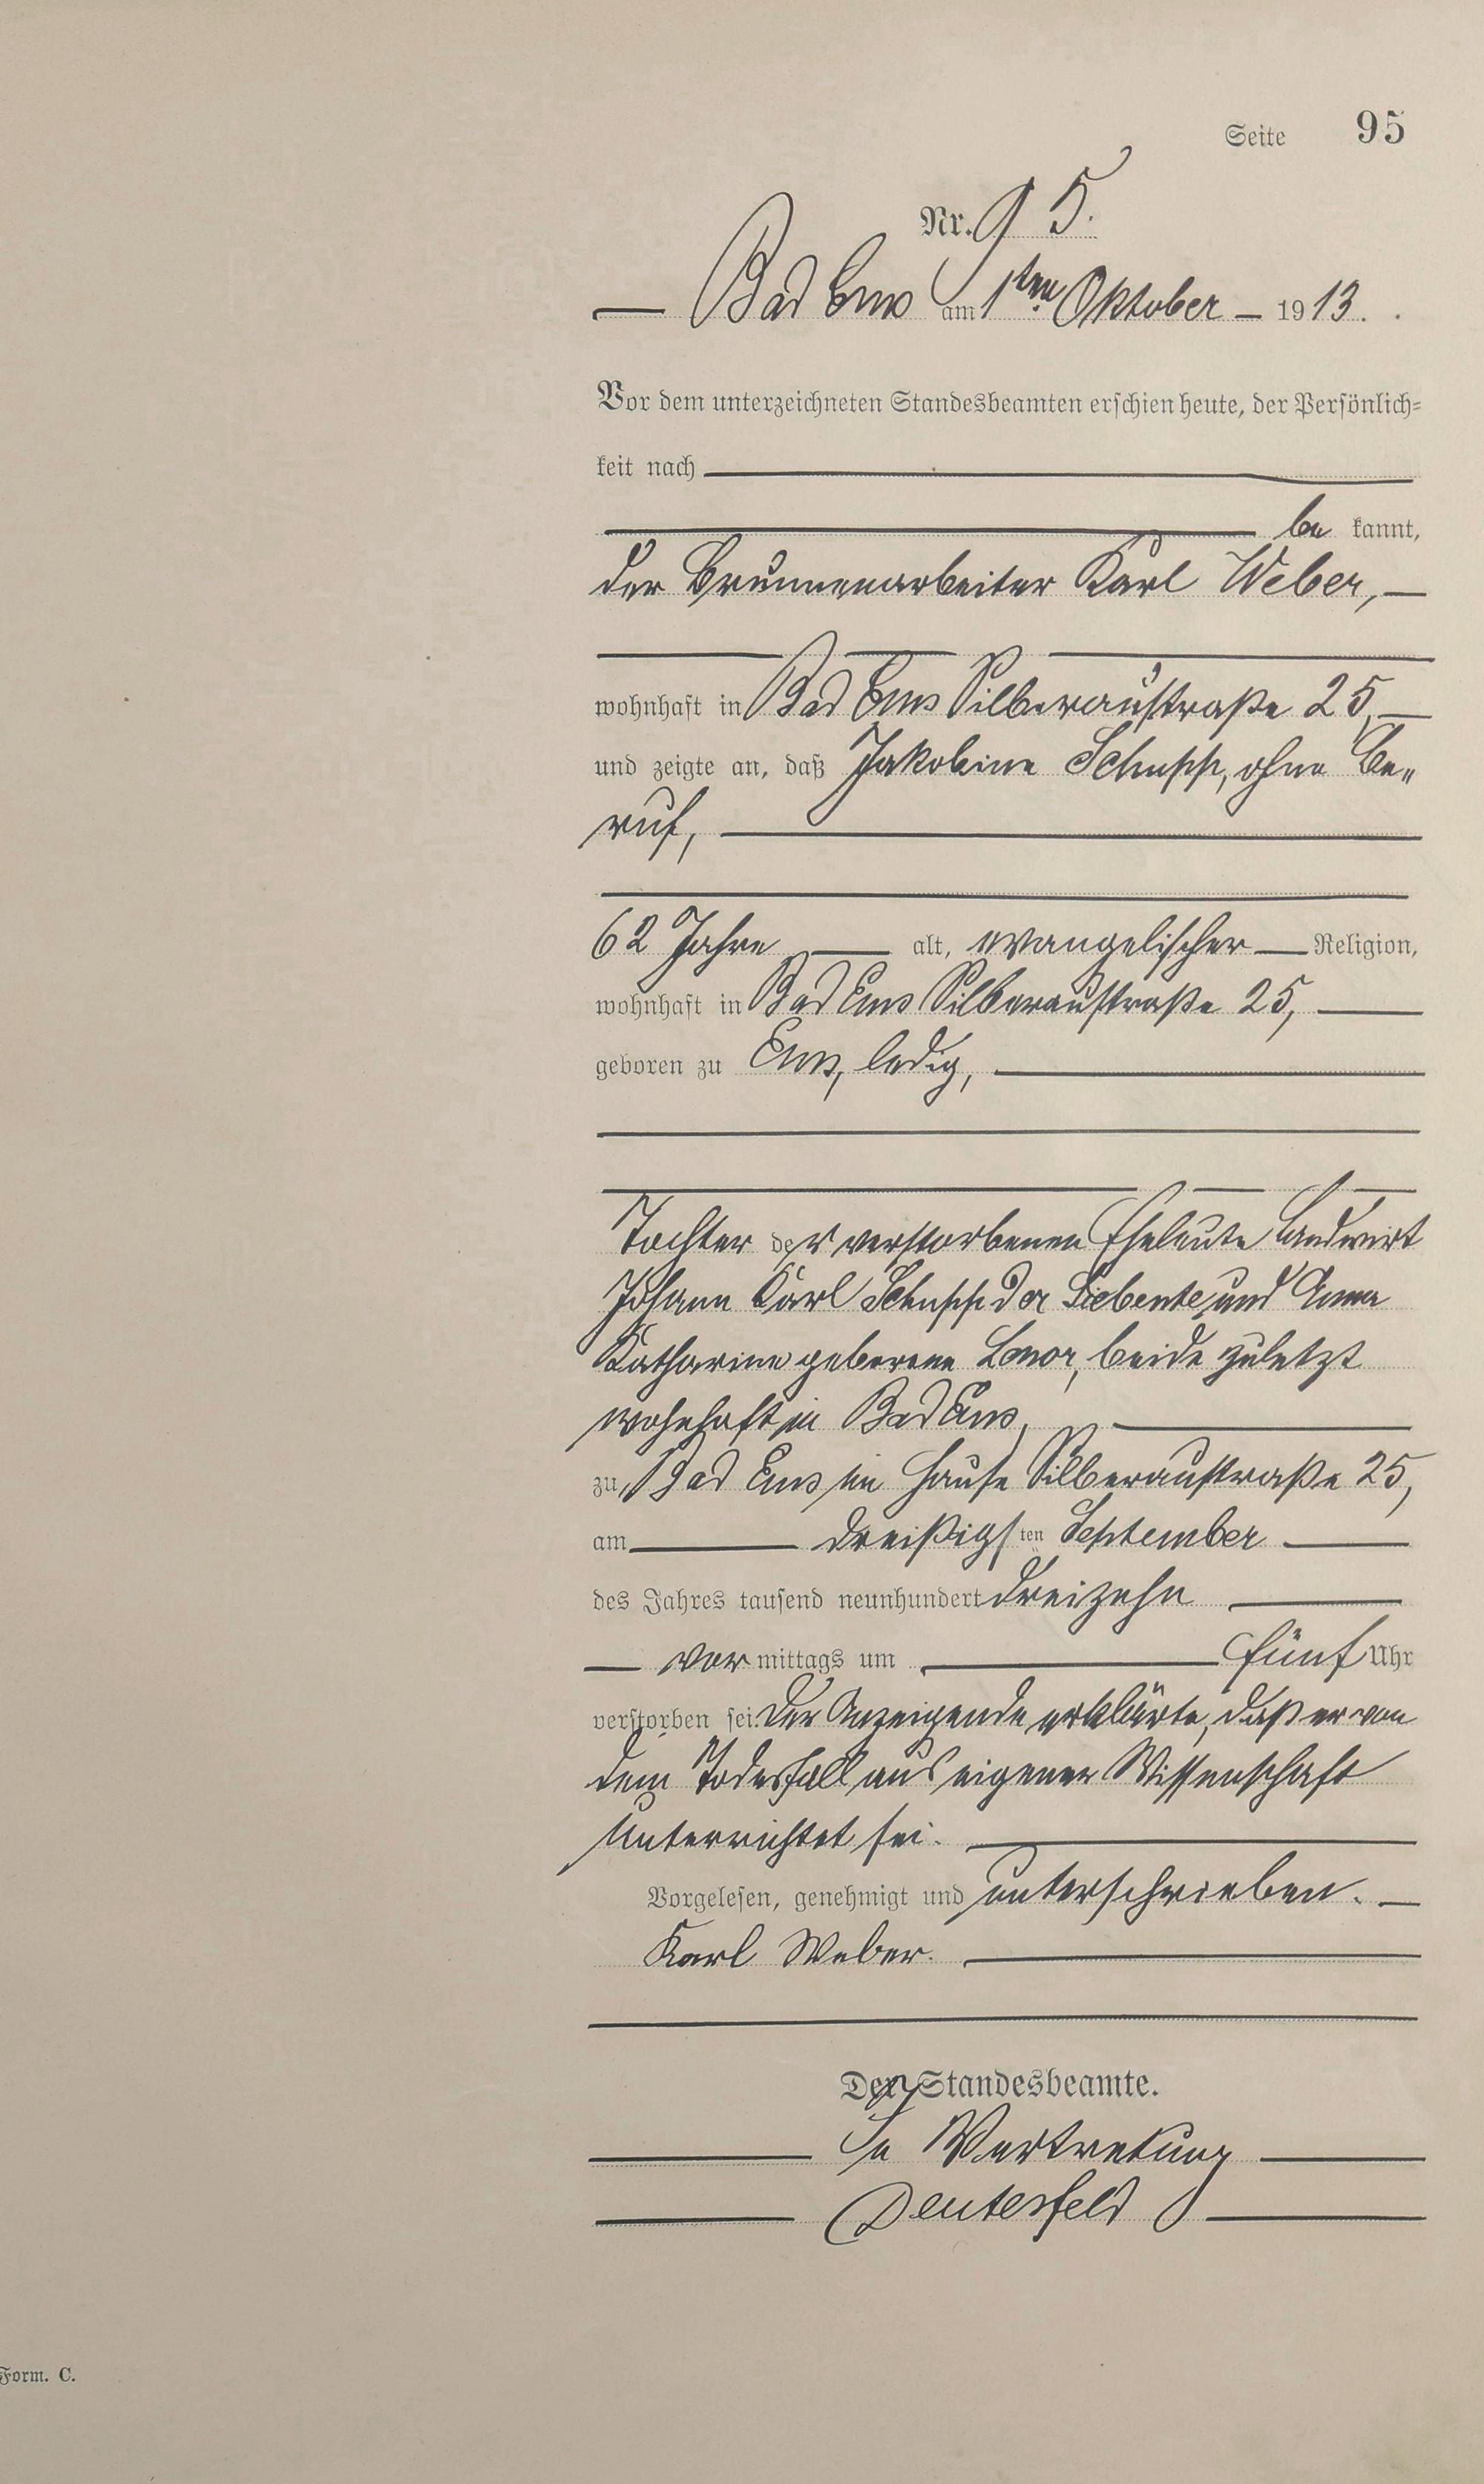 Seite 95
Nr. 95.
Bad Ems am 1ten Oktober 1913.
Vor dem unterzeichneten Standesbeamten erschien heute, der Persönlich=
keit nach
be kannt,
der Brunnenarbeiter Karl Weber,
wohnhaft in Bad Ems Silberaustraße 25,
und zeigte an, daß Jakobine Schupp, ohne Be„
ruf,
62 Jahre alt, evangelischer Religion,
wohnhaft in Bad Ems Silberaustraße 25,
geboren zu Ems, ledig,
Tochter der verstorbenen Eheleute Landwirt
Johann Karl Schupp der Siebente und Anna
Katharine geborene, beide zuletzt
wohnhaft in Bad Ems,
zu Bad Ems im Hause Silberaustraße 25,
am dreißigsten September
des Jahres tausend neunhundert dreizehn
vormittags um fünf Uhr
verstorben sei. Der Anzeigende erklärte, daß er von
dem Todesfall aus eigener Wissenschaft
unterrichtet sei.
Vorgelesen, genehmigt und unterschrieben.
Karl Weber.
Der Standesbeamte.
In Vertretung
Deutesfeld
Form. C.